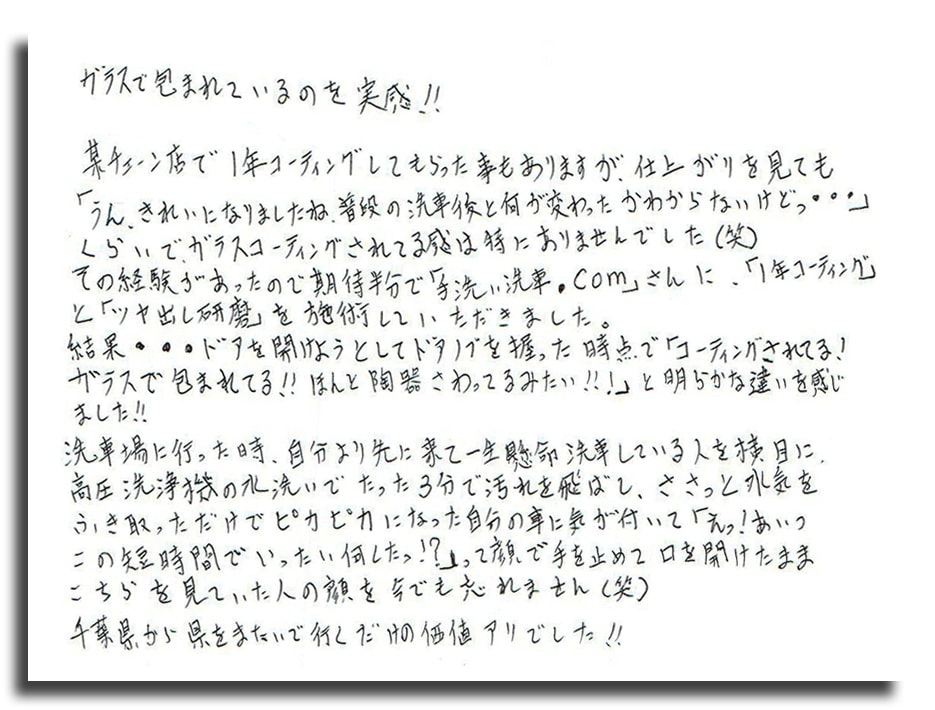 ガラスで包まれているのを実感!!
某チェーン店で1年コーティングしてもらった事もありますが、仕上がりを見ても
「うん、きれいになりましたね、普段の洗車後と何が変わったかわからないけどっ・・・」
くらいで、ガラスコーティングされてる感は特にありませんでした(笑)
その経験があったので期待半分で「手洗い洗車.com」さんに、「1年コーティング」
と「ツヤ出し研磨」を施術していただきました。
結果・・・ドアを開けようとしてドアノブを握った時点で「コーティングされてる!
ガラスで包まれてる!!ほんと陶器さわってるみたい!!!」と明らかな違いを感じ
ました!!
洗車場に行った時、自分より先に来て一生懸命洗車している人を横目に、
高圧洗浄機の水洗いでたった3分で汚れを飛ばし、ささっと水気を
ふき取っただけでピカピカになった自分の車に気が付いて「えっ!あいつ
この短時間でいったい何したっ!?」って顔で手を止めて口を開けたまま
こちらを見ていた人の顔を今でも忘れません(笑)
千葉県から県をまたいで行くだけの価値アリでした!!